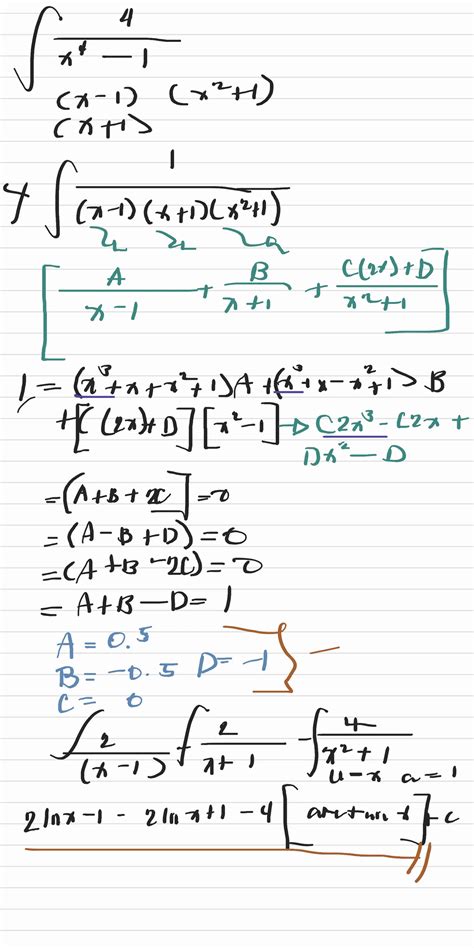 ∫ 4 / (x⁴ − 1)
(x−1) (x²+1)
(x+1)
4 ∫ 1 / ((x−1)(x+1)(x²+1))
[ A/(x−1) + B/(x+1) + (C(2x)+D)/(x²+1) ]
1 = (x³+x+x²+1)A + (x³+x−x²+1)B
+[C(2x)+D][x²−1] → C2x³ − C2x +
Dx² − D
=(A+B+2C]=0
=(A−B+D)=0
=(A+B−2C)=0
= A+B−D= 1
A = 0.5
B= −0.5 D= −1 } −
C= 0
∫ 2/(x−1) − ∫ 2/(x+1) − ∫ 4/(x²+1)
u−x a=1
2lnx−1 − 2lnx+1 −4 [arctan x]+c